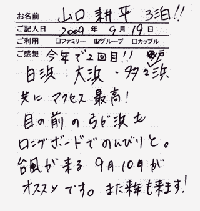 お名前 山口 耕平 3泊!!
ご記入日 2009年 9月 19日
ご利用 □ファミリー ☑グループ □カップル
ご感想 今年で2回目!!
白浜・大浜・多々浜
共に アクセス 最高!
目の前の 弓ヶ浜も
ロングボードでのんびりと。
台風が来る 9月10月が
オススメです。また来年も来ます!